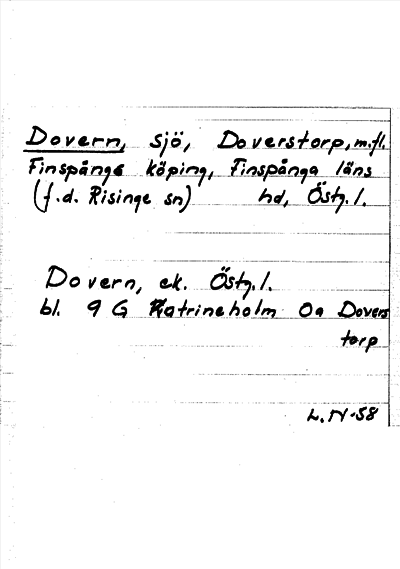 Dovern, sjö, Doverstorp, m.fl.
Finspångs köping, Finspånga läns
(f.d. Risinge sn) hd, Östg.l.
Dovern, ek. Östg.l.
bl. 9 G Katrineholm 0a Dovers
torp
L.N-58